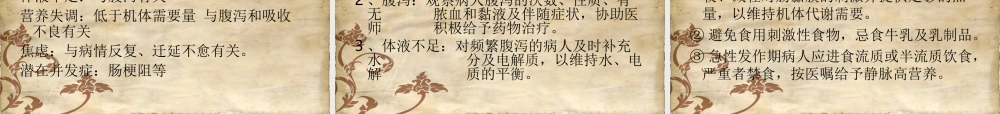 营养失调：低于机体需要量 与腹泻和吸收
不良有关
焦虑：与病情反复、迁延不愈有关。
潜在并发症：肠梗阻等
2、腹泻：观察病人腹泻的次数、性质、有
无 脓血和黏液及伴随症状，协助医
师 积极给予药物治疗。
3、体液不足：对频繁腹泻的病人及时补充
水 分及电解质，以维持水、电
解 质的平衡。
量，以维持机体代谢需要。
② 避免食用刺激性食物，忌食牛乳及乳制品。
③ 急性发作期病人应进食流质或半流质饮食，
严重者禁食，按医嘱给予静脉高营养。